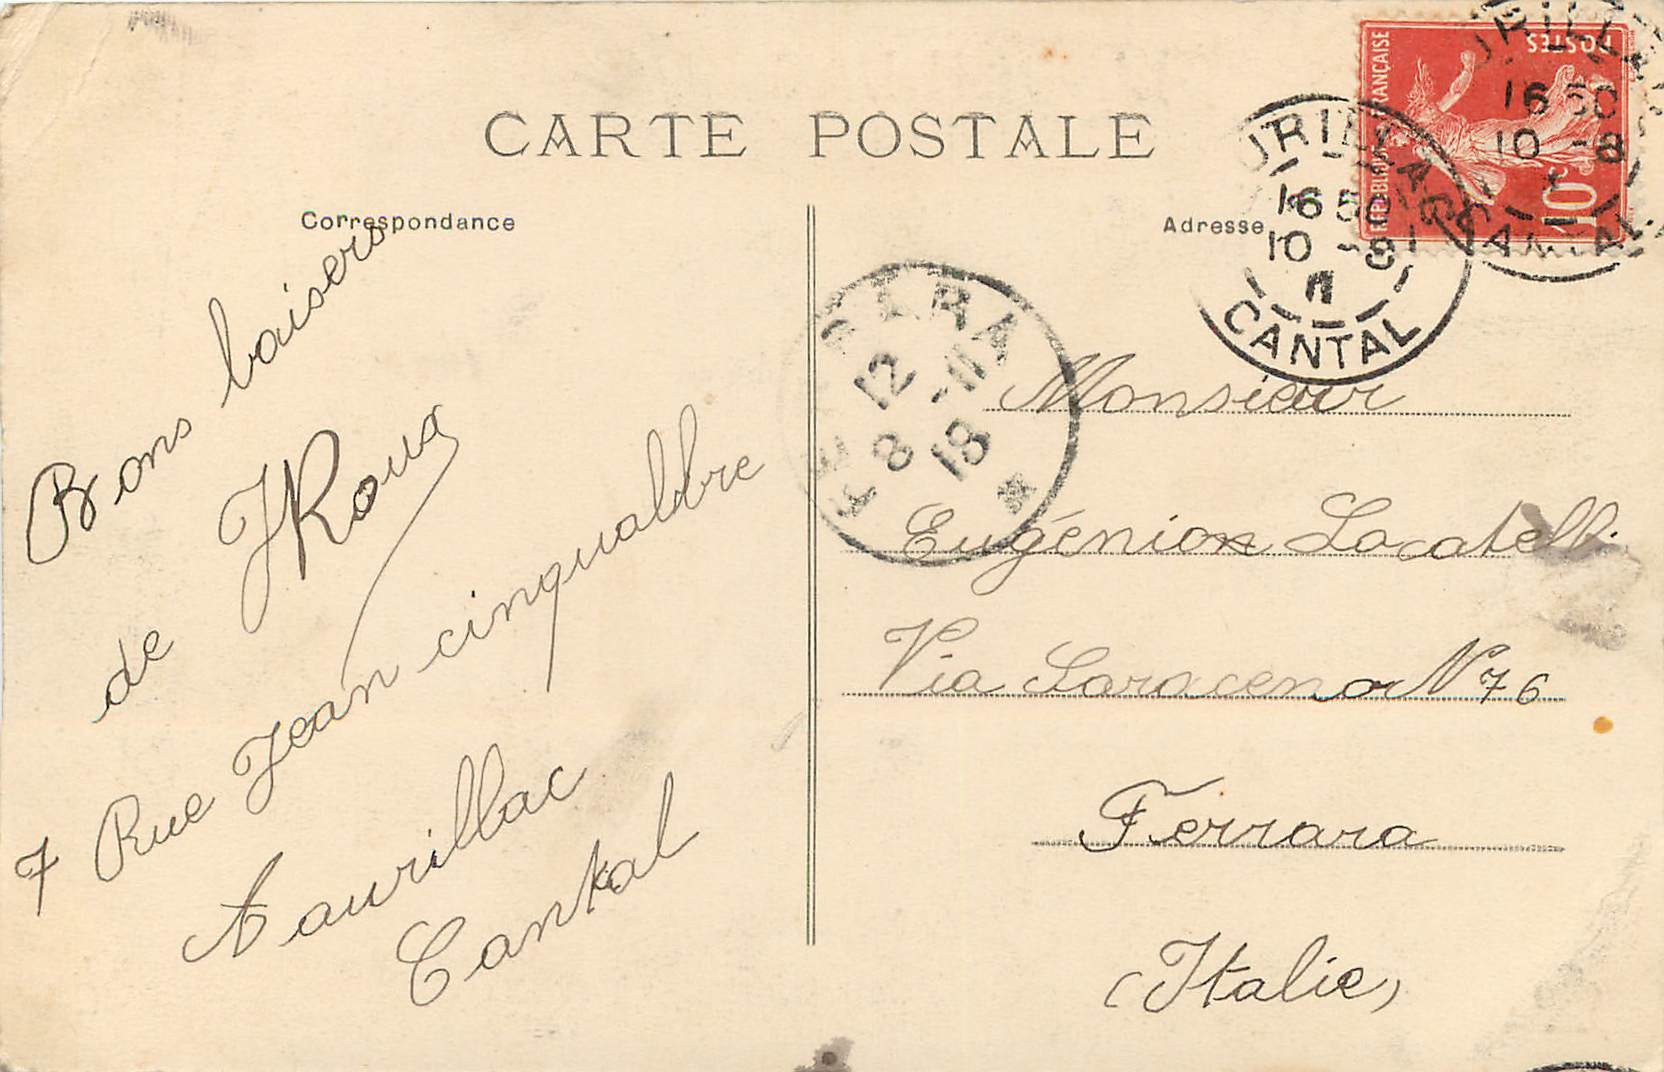 CARTE POSTALE
Correspondance
Bons baisers
de JRoux
7 Rue Jean cinqualbre
Aaurillac
Cantal
Adresse
Monsieur
Eugénion Locatelli
Via Saraceno N 76
Ferrara
(Italie)
REPUBLIQUE FRANÇAISE
POSTES
10c
URILLAC
16 50
10 -8
CANTAL
URILLAC
16 50
10 -8
11
CANTAL
FERRARA
12
8 -11
18